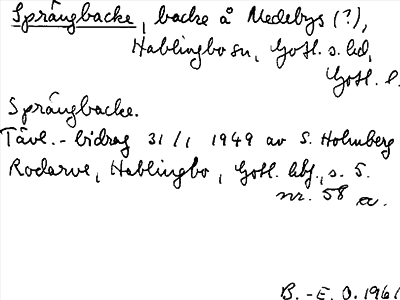 Språngbacke, backe å Medebys (?),
Hablingbo sn, Gotl. s. hd,
Gotl. l.
Språngbacke.
Tävl.-bidrag 31/1 1949 av S. Holmberg
Rodarve, Hablingbo, Gotl. hbf., s. 5.
nr. 58 a.
B.-E. O. 1961